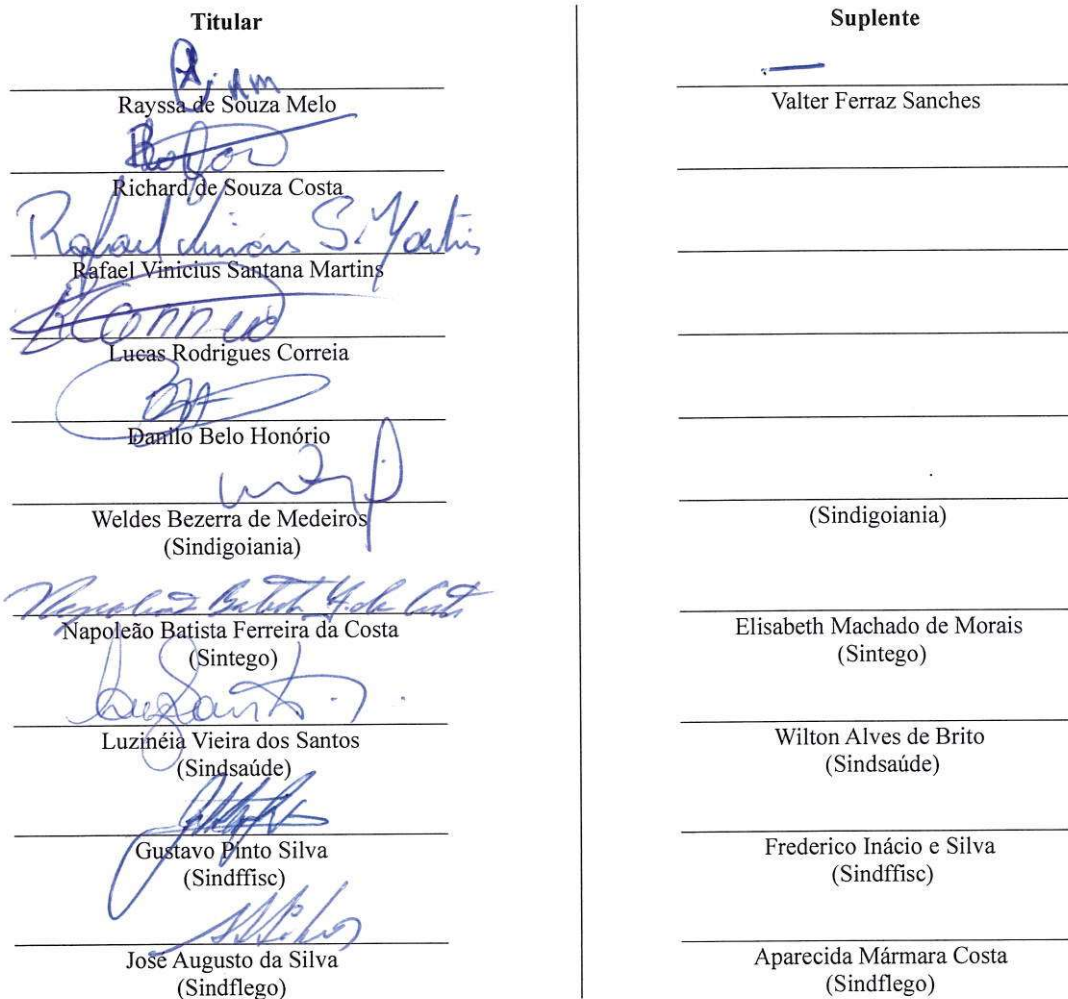 Titular
Rayssa de Souza Melo
Richard de Souza Costa
Rafael Vinicius S. Martins
Rafael Vinicius Santana Martins
Lucas Rodrigues Correia
Danilo Belo Honório
Weldes Bezerra de Medeiros
(Sindigoiania)
Napoleão Batista F. da Costa
Napoleão Batista Ferreira da Costa
(Sintego)
Luzinéia Vieira dos Santos
(Sindsaúde)
Gustavo Pinto Silva
(Sindffisc)
José Augusto da Silva
(Sindflego)
Suplente
Valter Ferraz Sanches
(Sindigoiania)
Elisabeth Machado de Morais
(Sintego)
Wilton Alves de Brito
(Sindsaúde)
Frederico Inácio e Silva
(Sindffisc)
Aparecida Mármara Costa
(Sindflego)